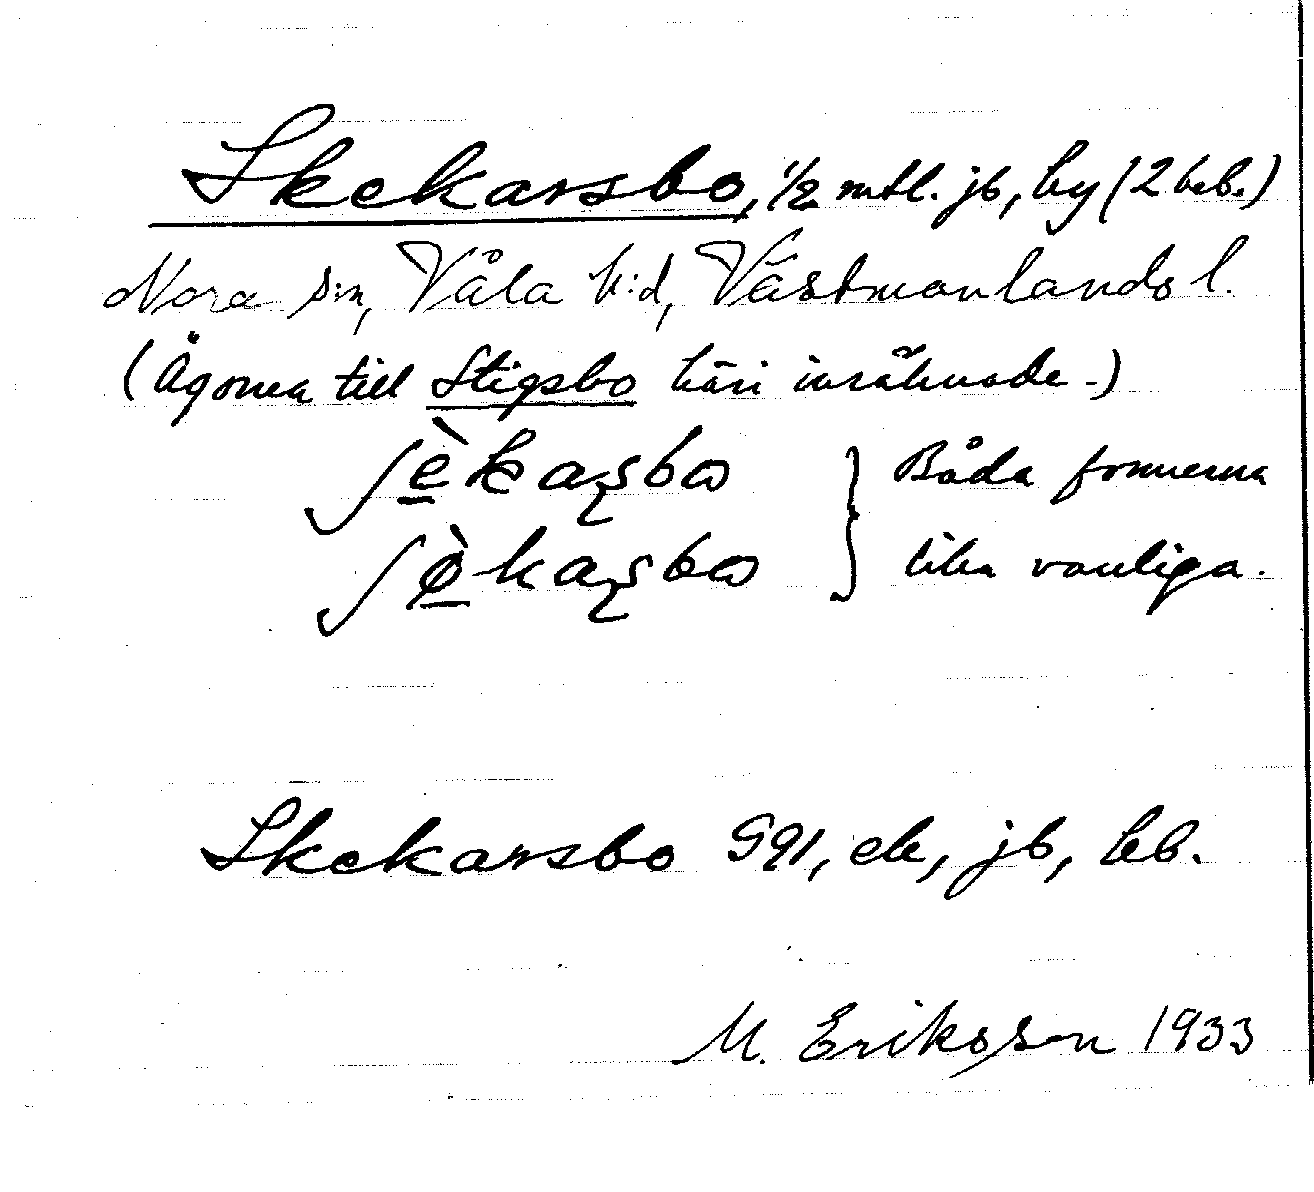 Skekarsbo, 1/2 mtl. jb, by (2 beb.)
Nora s:n, Våla h:d, Västmanlands l.
(Ägorna till Stigsbo häri inräknade.)
ʃèkaꞩbɷ } Båda formerna
ʃø̀kaꞩbɷ } lika vanliga.
Skekarsbo G91, ek, jb, beb.
M. Eriksson 1933